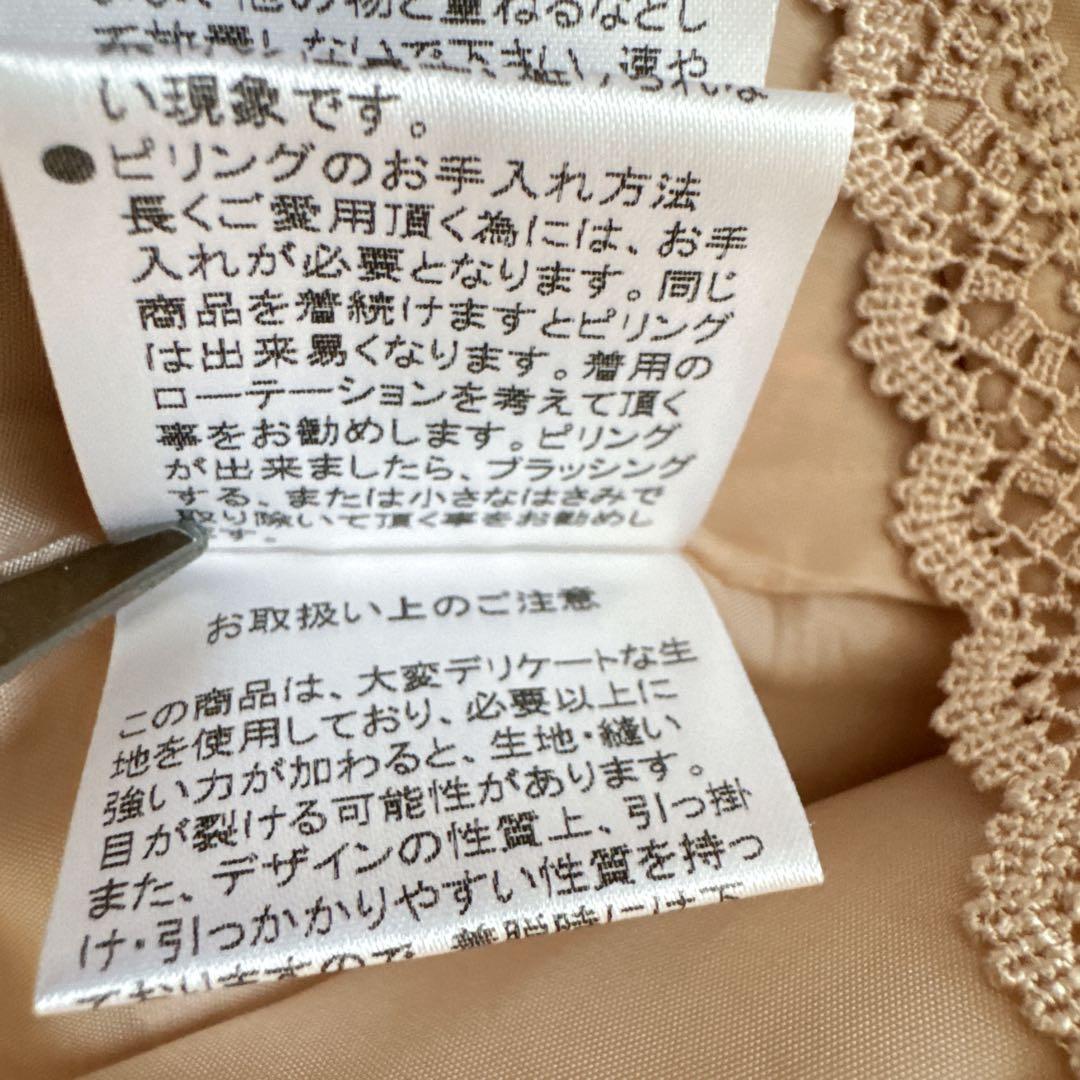 他の物と重ねるなどし
ないで下さい。速や
い現象です。
●ピリングのお手入れ方法
長くご愛用頂く為には、お手
入れが必要となります。同じ
商品を着続けますとピリング
は出来易くなります。着用の
ローテーションを考えて頂く
事をお勧めします。ピリング
が出来ましたら、ブラッシング
する、または小さなはさみで
取り除いて頂く事をお勧めし
ます。
お取扱い上のご注意
この商品は、大変デリケートな生
地を使用しており、必要以上に
強い力が加わると、生地・縫い
目が裂ける可能性があります。
また、デザインの性質上、引っ掛
け・引っかかりやすい性質を持っ
ておりますので